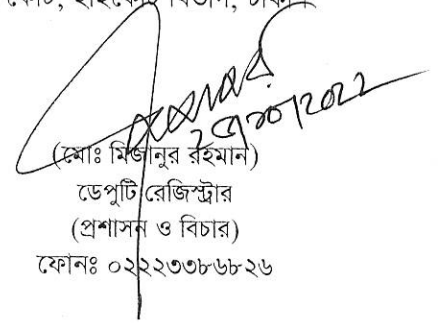 কোর্ট, হাইকোর্ট বিভাগ, ঢাকা।
(মোঃ মিজানুর রহমান)
ডেপুটি রেজিস্ট্রার
(প্রশাসন ও বিচার)
ফোনঃ ০২২২৩৩৮৬৮২৬